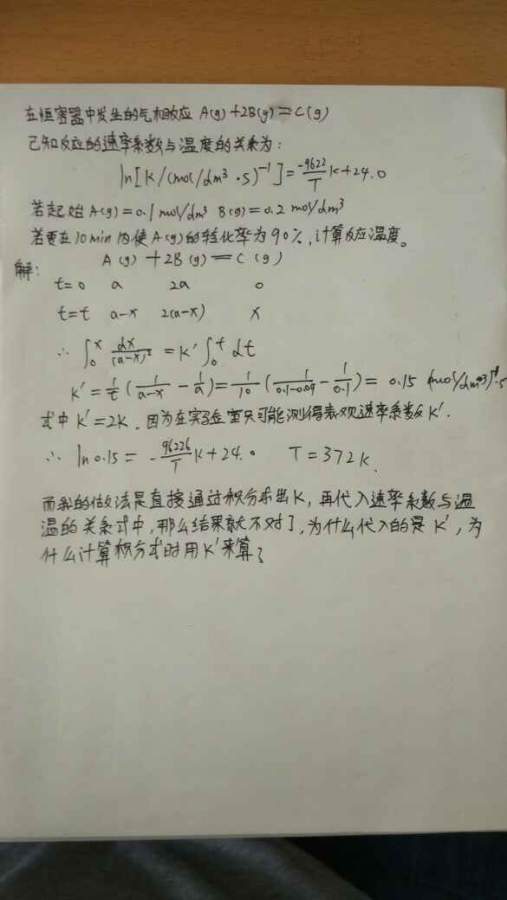 在恒容器中发生的气相反应 A(g)+2B(g)=C(g)
已知反应的速率系数与温度的关系为:
ln[k/(mol/dm³·s)⁻¹]=-9622/T K+24.0
若起始 A(g)=0.1 mol/dm³ B(g)=0.2 mol/dm³
若要在10min内使A(g)的转化率为90%,计算反应温度。
解: A(g)+2B(g)=C(g)
t=0 a 2a 0
t=t a-x 2(a-x) x
∴ ∫₀ˣ dx/(a-x)² = k' ∫₀ᵗ dt
k'=1/t(1/(a-x) - 1/a)=1/10(1/(0.1-0.09) - 1/0.1)= 0.15
式中k'=2k. 因为在实验室只可能测得表观速率系数k'.
∴ ln0.15 = -96226/T K+24.0 T=372K.
而我的做法是直接通过积分求出k,再代入速率系数与温
温的关系式中,那么结果就不对了,为什么代入的是k',为
什么计算积分式时用k'来算?